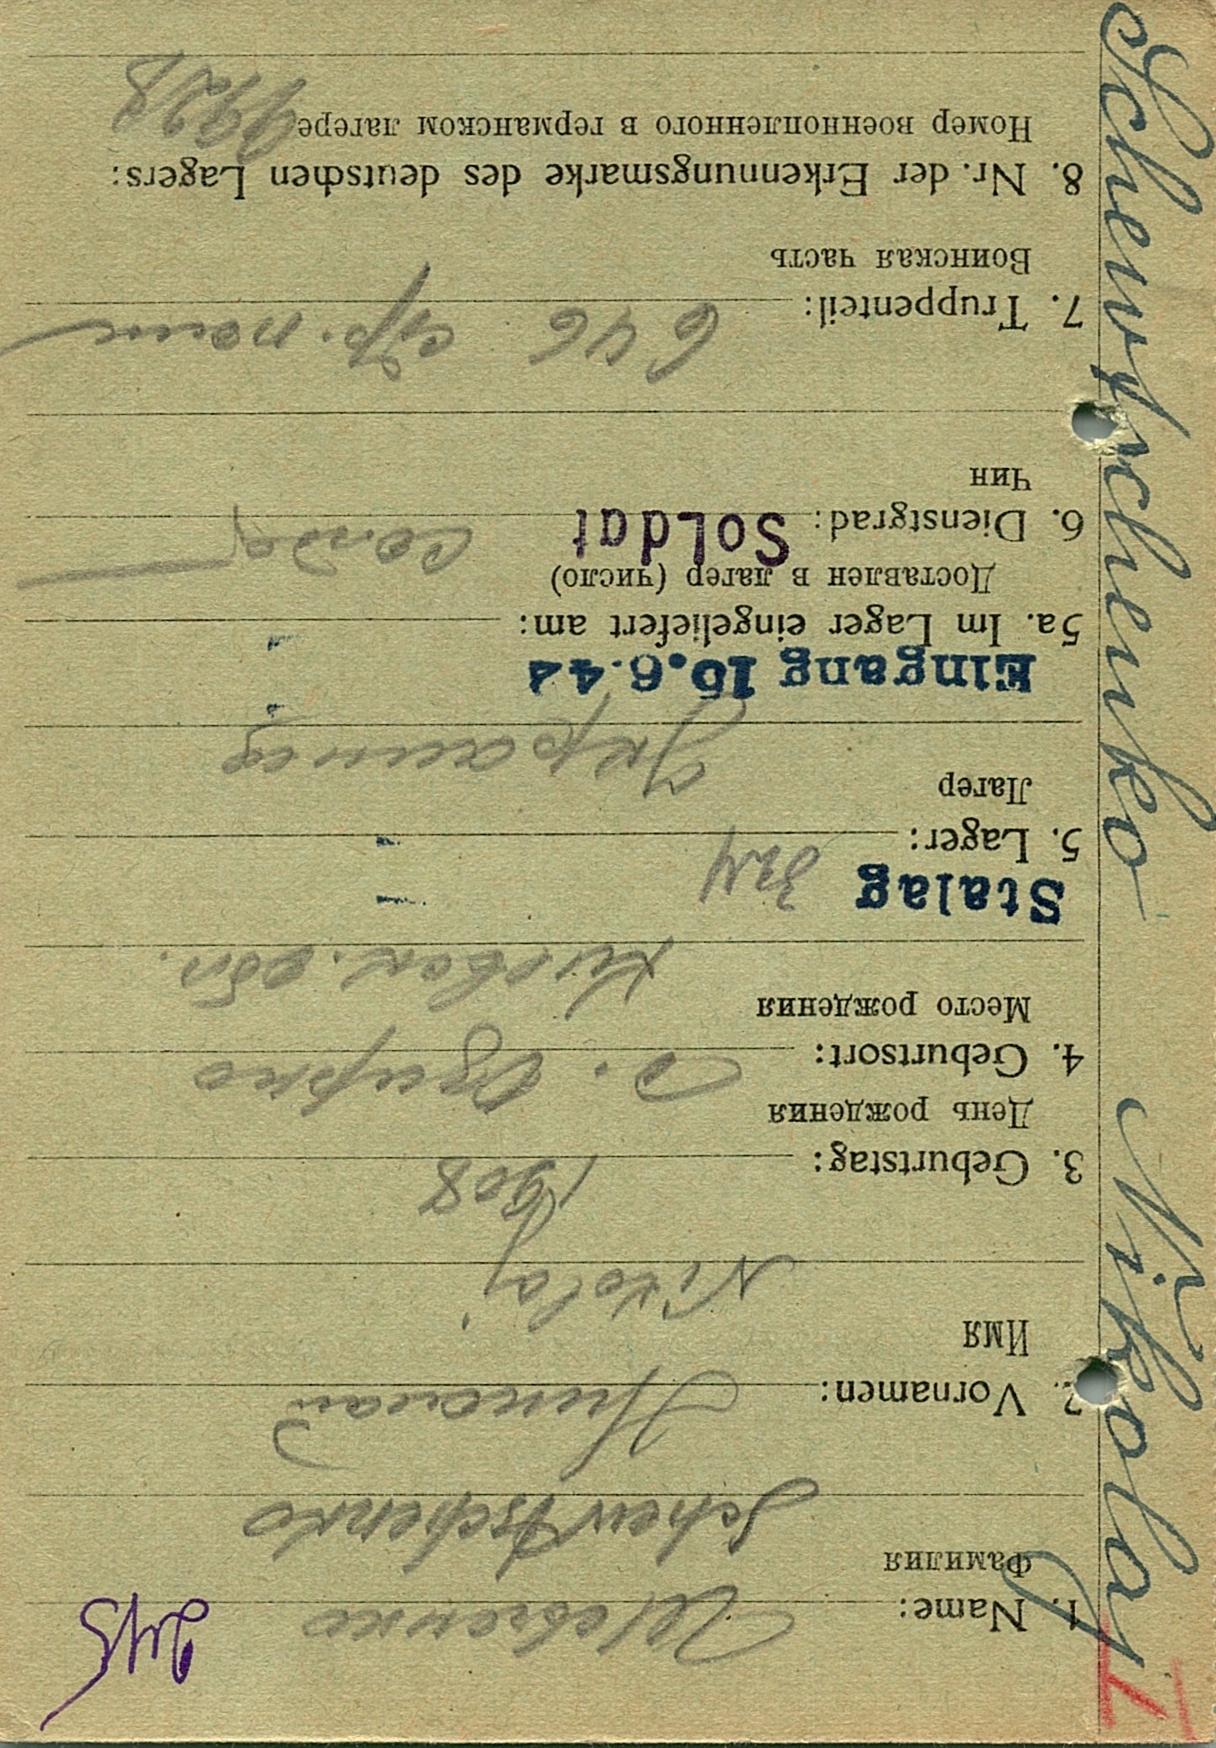 Schewtschenko Nikolaj
I
245
1. Name: Шевченко
Фамилия
Schewtschenko
2. Vornamen: Николай
Имя
Nikolaj
3. Geburtstag: 1908
День рождения
4. Geburtsort: с.
Место рождения
Киевск. обл.
Stalag 324
5. Lager:
Лагер
Украинец
Eingang 16.6.44
5a. Im Lager eingeliefert am:
Доставлен в лагер (число)
6. Dienstgrad: Soldat солд
Чин
7. Truppenteil: 646 стр. полк
Воинская часть
8. Nr. der Erkennungsmarke des deutschen Lagers:
Номер военнопленного в германском лагере